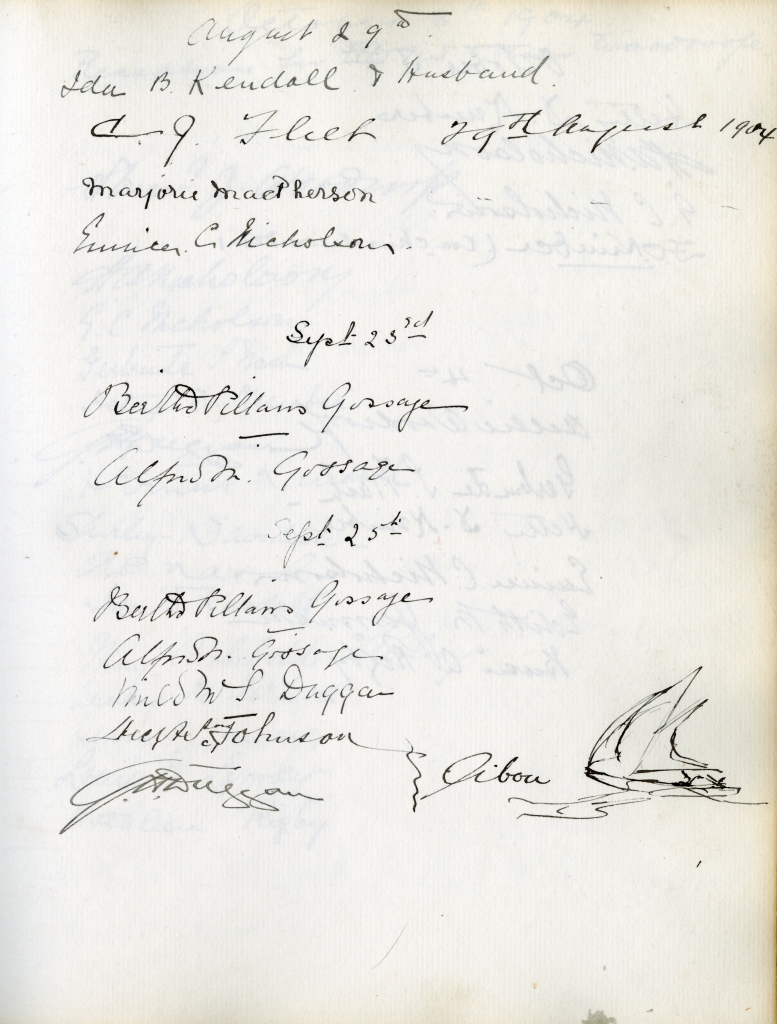 August 29th
Ida B. Kendall & Husband.
C. J. Fleet 29th August 1904
Marjorie MacPherson
Eunice C. Nicholson.
Sept 23rd
Bertha Pillans Gossage
Alfred M. Gossage
Sept 25th
Bertha Pillans Gossage
Alfred M. Gossage
Mildred S. Duggan
Johnson
G. H. Duggan
Oibou